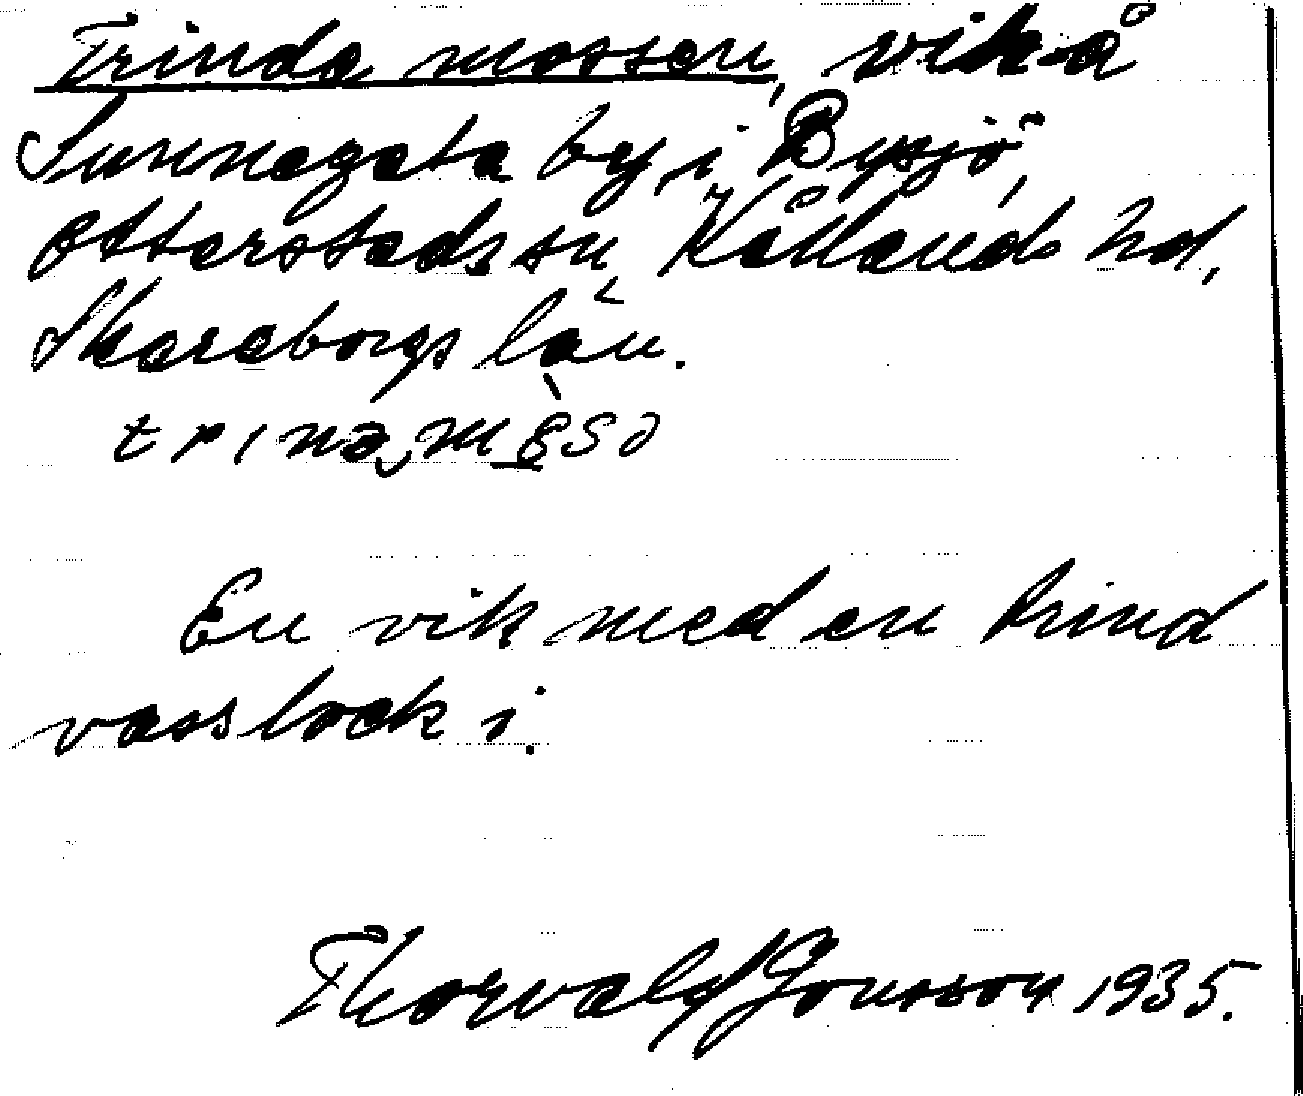 Trinda mossen, vik å
Sunnegata by, i Bysjö,
Otterstads sn, Kållands hd,
Skaraborgs län.
trinə mɷ̀sə
En vik med en trind
vasslock i.
Thorvald Jonsson 1935.